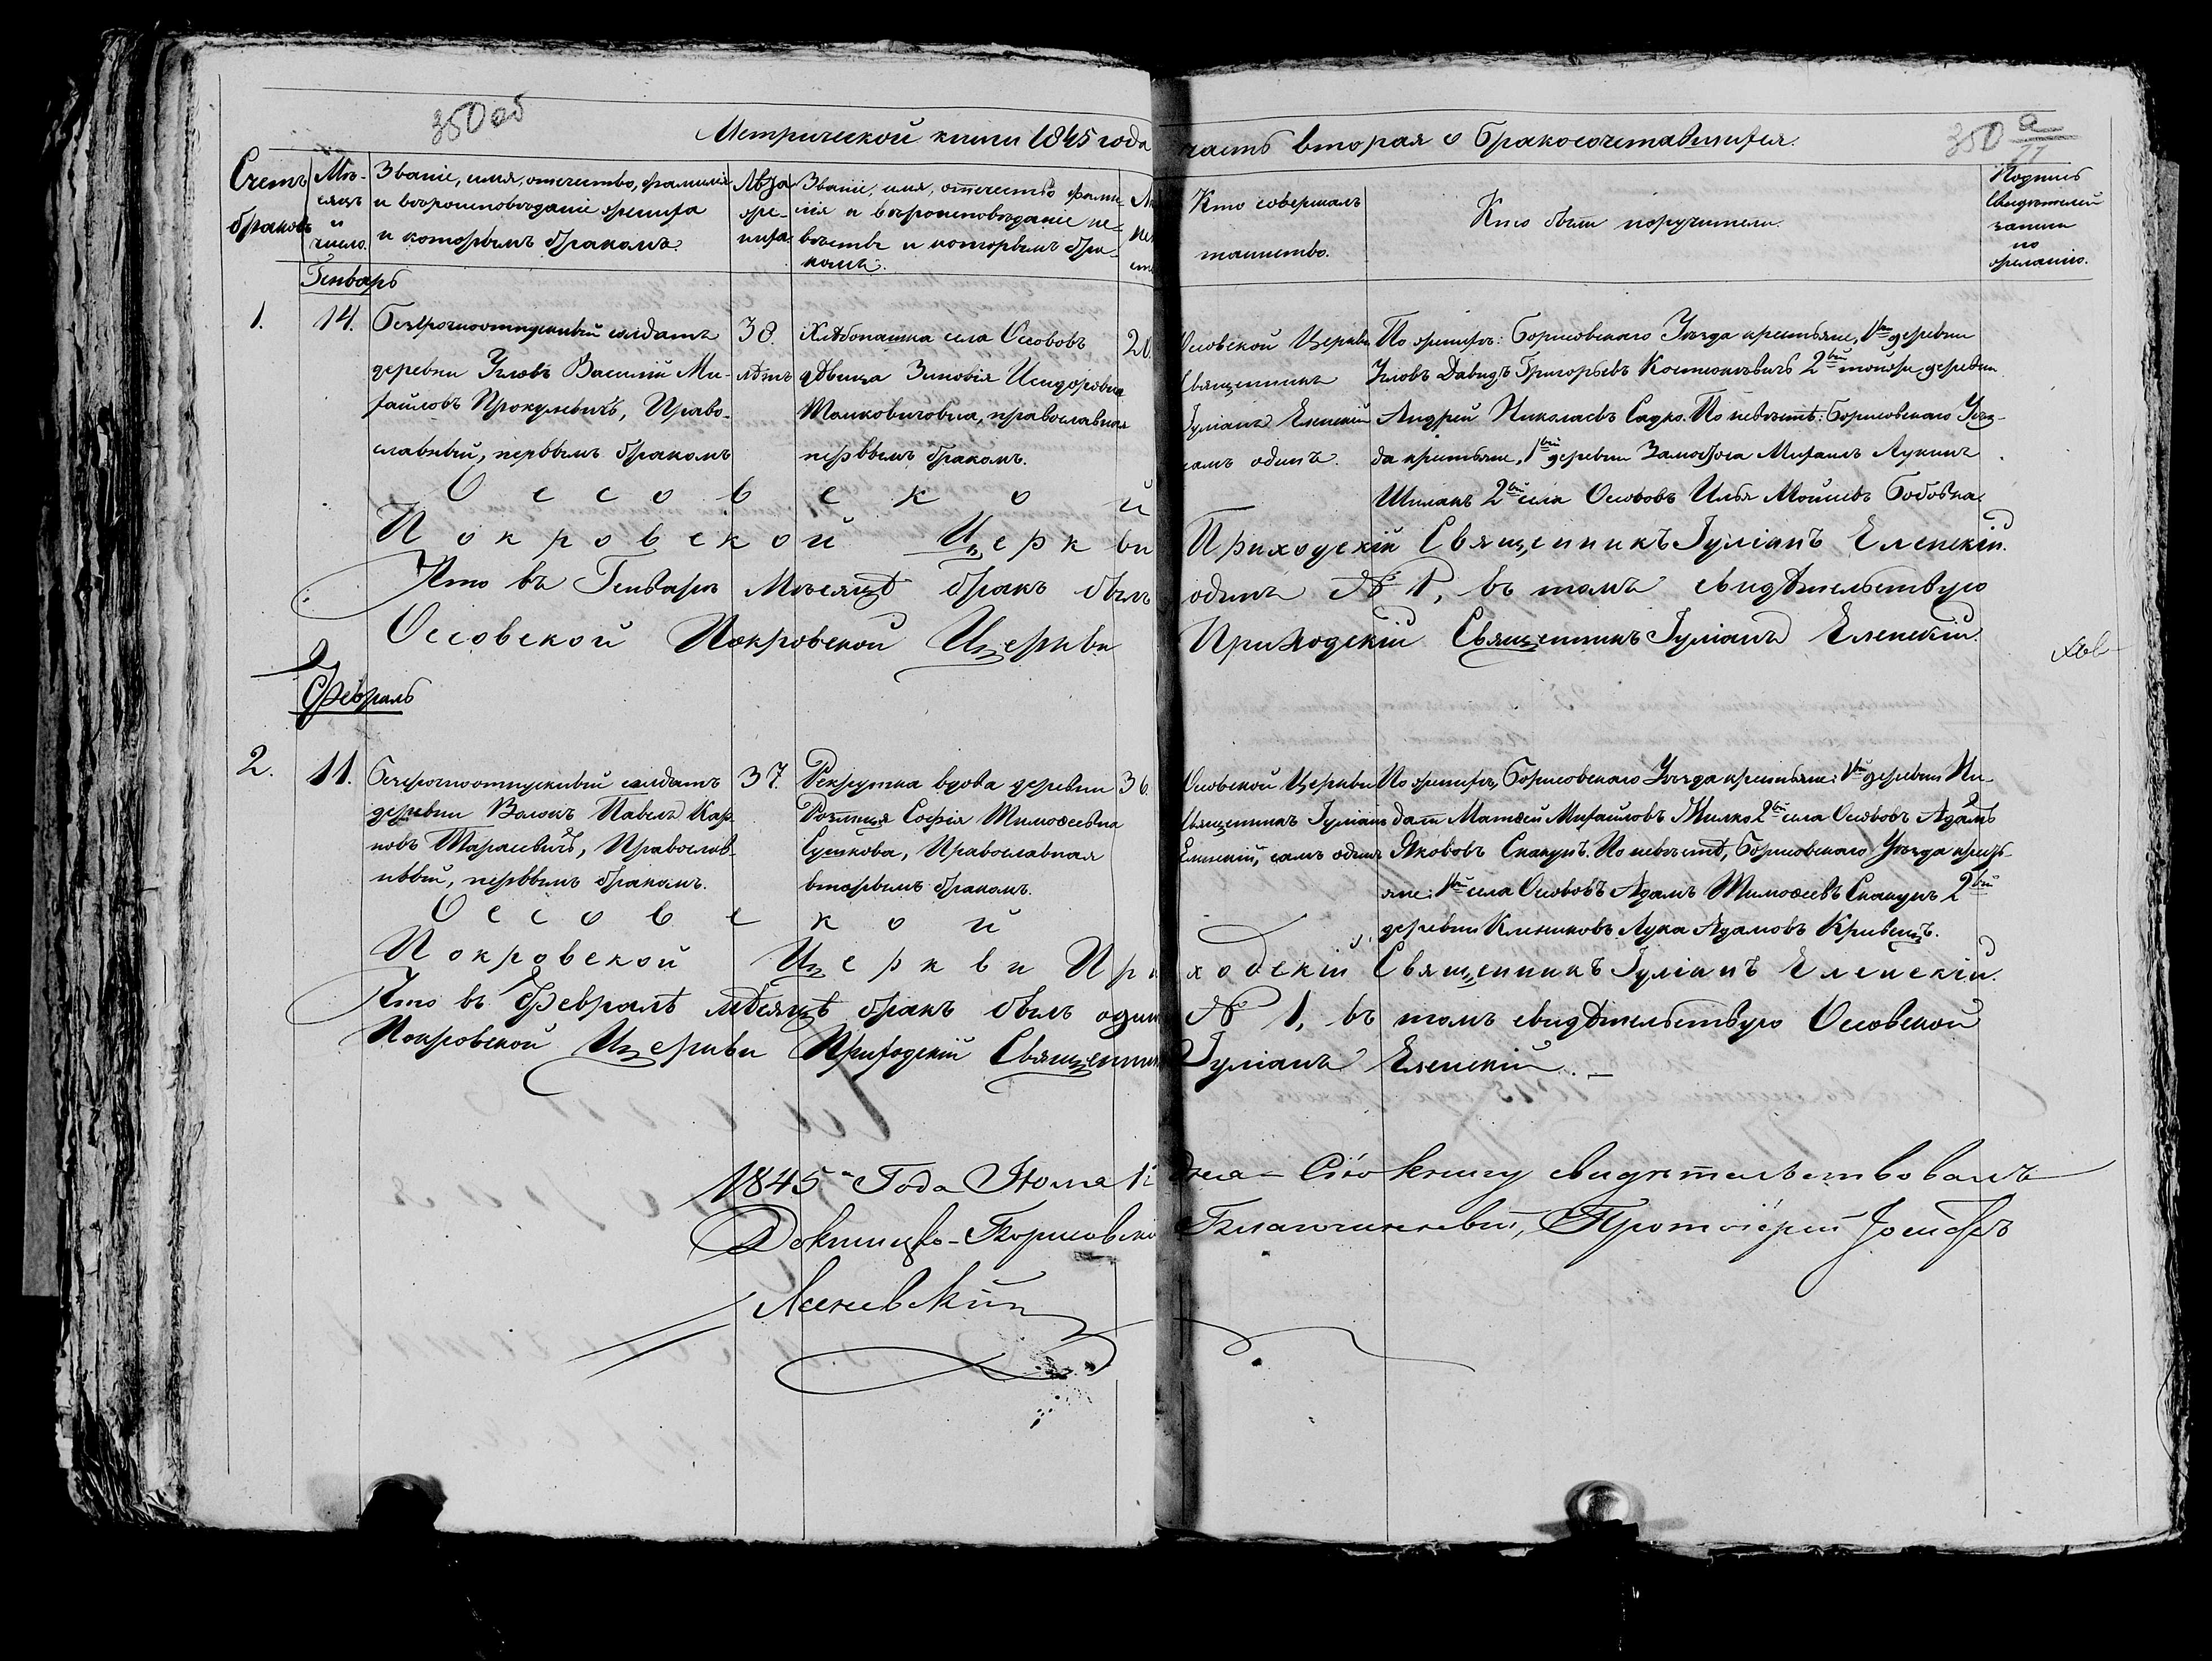 350 об
Метрической книги 1845 года часть вторая о бракосочетавшихся.
350
Счетъ браковъ
Мѣсяцъ и число.
Званіе, имя, отечество, фамилія
и вѣроисповѣданіе жениха
и которымъ бракомъ.
Лѣта
же-
ниха
Званіе, имя, отечество фами-
лія и вѣроисповѣданіе не-
вѣсты и которымъ бра-
комъ.
Кто совершалъ
таинство.
Кто были поручители.
Подпись
свидѣтелей
записи
по
желанію.
Генварь
1.
14.
Безсрочноотпускный солдатъ
деревни Узловъ Василій Ми-
хайловъ Прокулевичъ, Право-
славный, первымъ бракомъ
38.
лѣтъ
Хлѣбопашка села Оссововъ
дѣвица Зиновія Исидоровна
православная
первымъ бракомъ.
20.
Осовской Церкви
Священникъ
Іуліанъ Еленскій
самъ одинъ.
По женихѣ: Борисовскаго Уѣзда крестьяне, 1ый деревни
Узловъ Давидъ Григорьевъ 2ой тойже деревни
Андрей Николаевъ Садко. По невѣстѣ: Борисовскаго Уѣз-
да крестьяне, 1ый деревни Михаилъ Лукинъ
2ой села Осововъ Илья
Оссовской
Покровской Церкви Приходскій Священникъ Іуліанъ Еленскій.
Что въ Генварѣ Мѣсяцѣ бракъ былъ одинъ № 1, въ томъ свидѣтельствую
Оссовской Покровской Церкви Приходскій Священникъ Іуліанъ Еленскій.
Февраль
2.
11.
Безсрочноотпускный солдатъ
деревни Волокъ Павелъ Кар-
повъ Тарасевичъ, Православ-
ный, первымъ бракомъ.
37.
Рекрутка вдова деревни
Софія Тимоѳеевна
Сушкова, Православная
вторымъ бракомъ.
36.
Осовской Церкви
Священникъ Іуліанъ
Еленскій, самъ одинъ
По женихѣ, Борисовскаго Уѣзда крестьяне: 1ый деревни
Матѳей Михайловъ 2ой села Осововъ Адамъ
Яковъ Скакунъ. По невѣстѣ, Борисовскаго Уѣзда кресть-
яне: 1ый села Осововъ Адамъ Тимоѳеевъ Скакунъ 2ой
деревни Клениковъ Лука Адамовъ Кривецъ.
Оссовской
Покровской Церкви Приходскій Священникъ Іуліанъ Еленскій.
Что въ Февралѣ мѣсяцѣ бракъ былъ одинъ № 1, въ томъ свидѣтельствую Оссовской
Покровской Церкви Приходскій Священникъ Іуліанъ Еленскій.
1845 Года дня Сію книгу свидѣтельствовалъ
Докшицко-Борисовскій Благочинный, Протоіерей Іосифъ